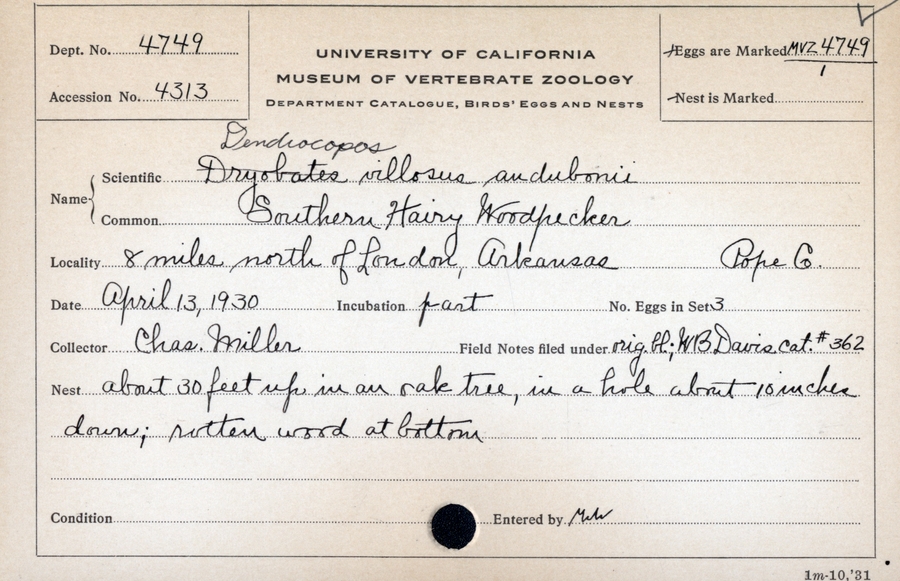 Dept. No. 4749
Accession No. 4313
UNIVERSITY OF CALIFORNIA
MUSEUM OF VERTEBRATE ZOOLOGY
DEPARTMENT CATALOGUE, BIRDS' EGGS AND NESTS
Eggs are Marked MVZ 4749
1
Nest is Marked
Dendrocopos
Name Scientific Dryobates villosus audubonii
Common Southern Hairy Woodpecker
Locality 8 miles north of London, Arkansas Pope Co.
Date April 13, 1930 Incubation part No. Eggs in Set 3
Collector Chas. Miller Field Notes filed under orig. bl; WB Davis cat. # 362
Nest about 30 feet up in an oak tree, in a hole about 10 inches
down; rotten wood at bottom
Condition Entered by
1m-10,'31